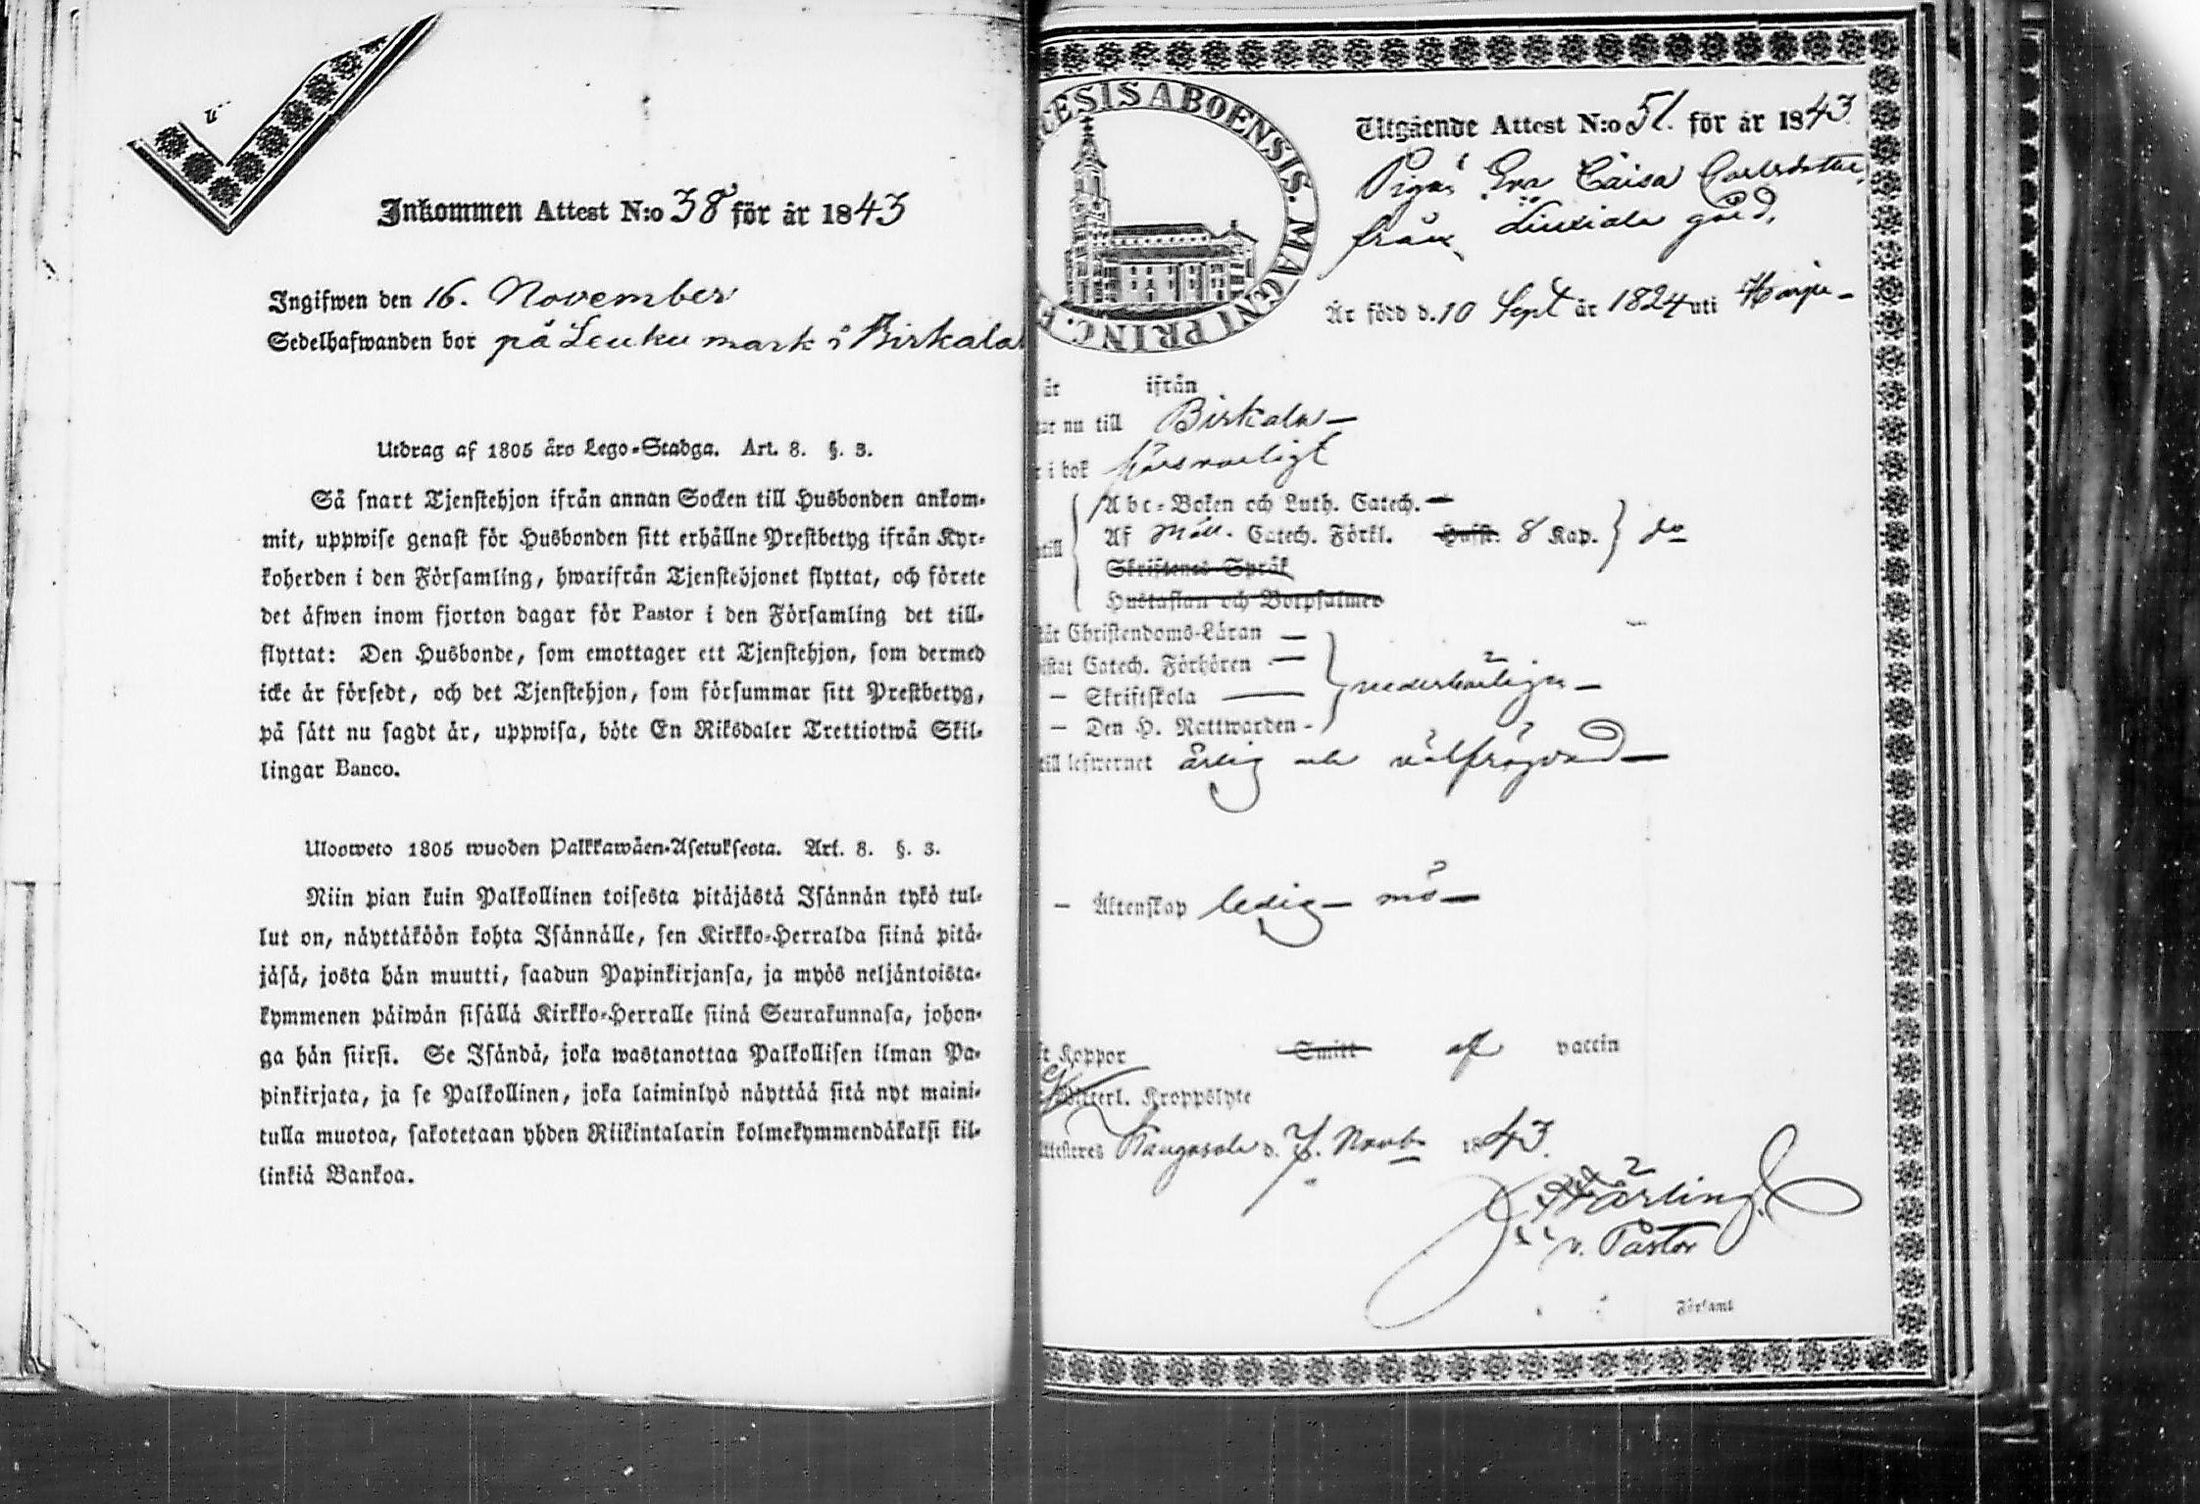 Inkommen Attest N:o 38 för år 1843
Ingifwen den 16. November
Sedelhafwanden bor på Leukumark i Birkala
Utdrag af 1805 års Lego-Stadga. Art. 8. §. 3.
Så snart Tjenstehjon ifrån annan Socken till Husbonden ankom-
mit, uppwise genast för Husbonden sitt erhållne Prestbetyg ifrån Kyr-
koherden i den Församling, hwarifrån Tjenstehjonet flyttat, och förete
det äfwen inom fjorton dagar för Pastor i den Församling det till-
flyttat: Den Husbonde, som emottager ett Tjenstehjon, som dermed
icke är försedt, och det Tjenstehjon, som försummar sitt Prestbetyg,
på sätt nu sagdt är, uppwisa, böte En Riksdaler Trettiotwå Skil-
lingar Banco.
Ulosweto 1805 wuoden Palkkawäen-Asetuksesta. Art. 8. §. 3.
Niin pian kuin Palkollinen toisesta pitäjästä Isännän tykö tul-
lut on, näyttäköön kohta Isännälle, sen Kirkko-Herralda siinä pitä-
jäsä, josta hän muutti, saadun Papinkirjansa, ja myös neljäntoista-
kymmenen päiwän sisällä Kirkko-Herralle siinä Seurakunnasa, johon-
ga hän siirsi. Se Isändä, joka wastanottaa Palkollisen ilman Pa-
pinkirjata, ja se Palkollinen, joka laiminlyö näyttää sitä nyt maini-
tulla muotoa, sakotetaan yhden Riikintalarin kolmekymmendäkaksi kil-
linkiä Bankoa.
ECESIS ABOENSIS. MAGNI PRINC. F
Utgående Attest N:o 51. för år 1843.
Pigan Eva Caisa Carlsdotter
från Liuxiala gård,
Är född d. 10 Sept år 1824 uti
år ifrån
nu till Birkala
i bok försvarligt
till Abc-Boken och Luth. Catech.
Af Catech. Förkl. Husst. 8 Kap. do
Skriftenes Språk
Hustaflan och Botpsalmer
Christendoms-Läran
Catech. Förhören
— Skriftskola
— Den H. Nattwarden
till lefwernet ärlig och välfrägdad
— Äktenskap ledig mö
Koppor Smitt af vaccin
Kroppslyte
Attesteres Kangasala d. 7. Novb 1843.
v. Pastor
Församl